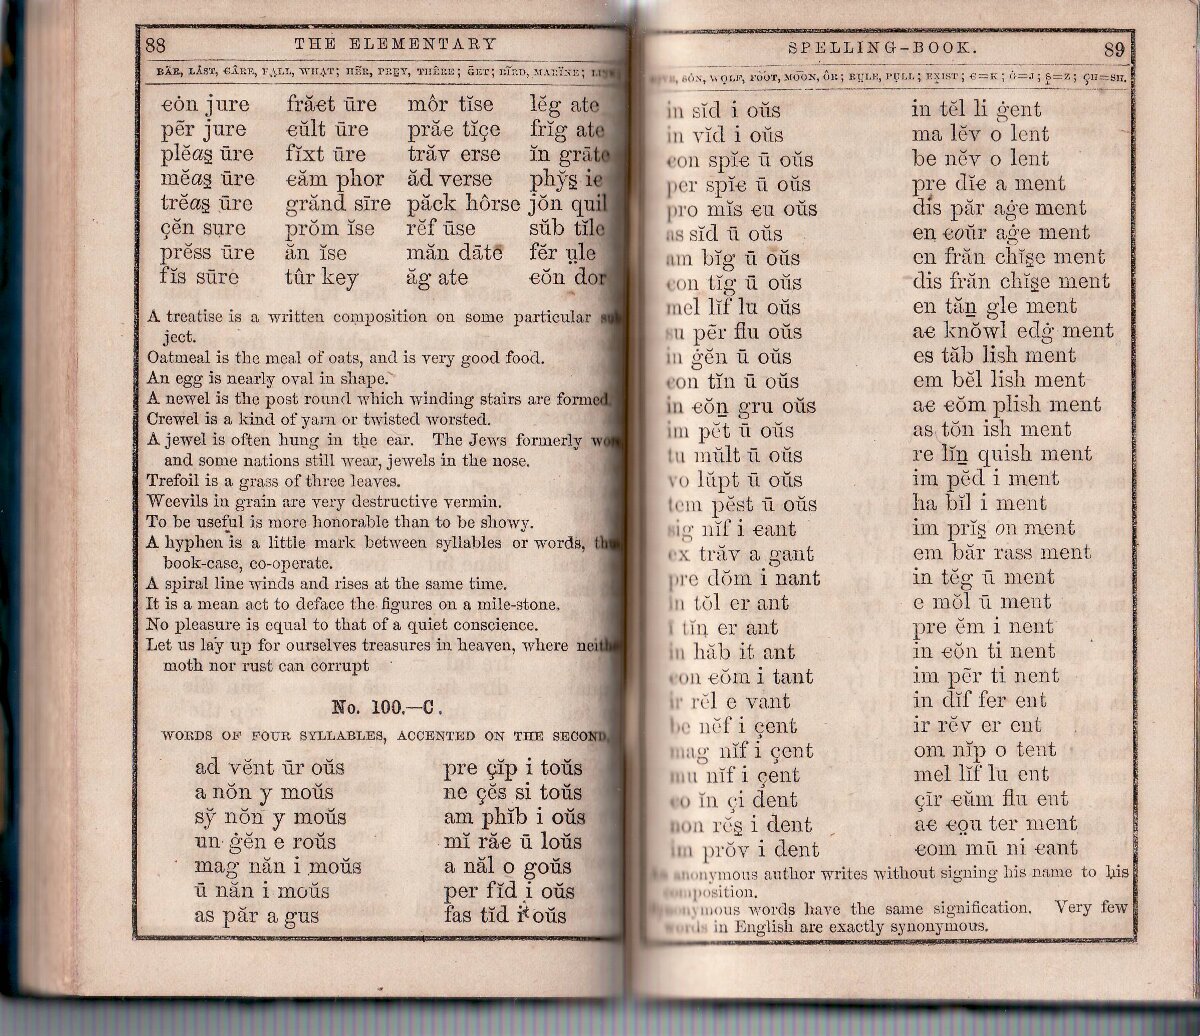 88 THE ELEMENTARY
BÄR, LÀST, CÂRE, FALL, WHAT; HËR, PREY, THÊRE; GET; BÏRD, MARÏNE;
eȯn jure frăet ūre môr tĭse lĕg ate
pẽr jure eŭlt ūre prăe tĭçe frĭg ate
plĕaş ūre fĭxt ūre trăv erse ĭn grāte
mĕaş ūre eăm phor ăd verse phy̆ş ie
trĕaş ūre grănd sīre păck hôrse jŏn quil
çĕn sure prŏm ĭse rĕf ūse sŭb tĭle
prĕss ūre ăn ĭse măn dāte fĕr ụle
fĭs sūre tûr key ăg ate eŏn dor
A treatise is a written composition on some particular sub
ject.
Oatmeal is the meal of oats, and is very good food.
An egg is nearly oval in shape.
A newel is the post round which winding stairs are formed.
Crewel is a kind of yarn or twisted worsted.
A jewel is often hung in the ear. The Jews formerly wore
and some nations still wear, jewels in the nose.
Trefoil is a grass of three leaves.
Weevils in grain are very destructive vermin.
To be useful is more honorable than to be showy.
A hyphen is a little mark between syllables or words, thus
book-case, co-operate.
A spiral line winds and rises at the same time.
It is a mean act to deface the figures on a mile-stone.
No pleasure is equal to that of a quiet conscience.
Let us lay up for ourselves treasures in heaven, where neither
moth nor rust can corrupt
No. 100.—C.
WORDS OF FOUR SYLLABLES, ACCENTED ON THE SECOND.
ad vĕnt ūr oŭs pre çĭp i toŭs
a nŏn y moŭs ne çĕs si toŭs
sy̆ nŏn y moŭs am phĭb i oŭs
un ġĕn e roŭs mĭ răe ū loŭs
mag năn i moŭs a năl o goŭs
ū năn i moŭs per fĭd i oŭs
as păr a gus fas tĭd i oŭs
SPELLING-BOOK. 89
SÓN, WOLF, FOOT, MOON, ÔR; RULE, PULL; EXIST; e=K; Ġ=J; Ş=Z; ÇH=SH.
in sĭd i oŭs in tĕl li ġent
in vĭd i oŭs ma lĕv o lent
eon spĭe ū oŭs be nĕv o lent
per spĭe ū oŭs pre dĭe a ment
pro mĭs eu oŭs dis păr aġe ment
as sĭd ū oŭs en eoŭr aġe ment
am bĭg ū oŭs en frăn chĭşe ment
eon tĭg ū oŭs dis frăn chĭşe ment
mel lĭf lu oŭs en tăṉ gle ment
su pẽr flu oŭs ae knŏwl edġ ment
in ġĕn ū oŭs es tăb lish ment
eon tĭn ū oŭs em bĕl lish ment
in eŏṉ gru oŭs ae eŏm plish ment
im pĕt ū oŭs as tŏn ish ment
tu mŭlt ū oŭs re lĭṉ quish ment
vo lŭpt ū oŭs im pĕd i ment
tem pĕst ū oŭs ha bĭl i ment
sig nĭf i eant im prĭş on ment
ex trăv a gant em băr rass ment
pre dŏm i nant in tĕg ū ment
in tŏl er ant e mŏl ū ment
ī tĭn er ant pre ĕm i nent
in hăb it ant in eŏn ti nent
eon eŏm i tant im pẽr ti nent
ir rĕl e vant in dĭf fer ent
be nĕf i çent ir rĕv er ent
mag nĭf i çent om nĭp o tent
mu nĭf i çent mel lĭf lu ent
eo ĭn çi dent çĭr eŭm flu ent
non rĕş i dent ae eọu ter ment
im prŏv i dent eom mū ni eant
anonymous author writes without signing his name to his
composition.
Synonymous words have the same signification. Very few
words in English are exactly synonymous.